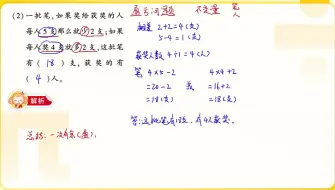 (2)一批笔,如果奖给获奖的人
每人5支那么就少2支;如果
每人奖4支就多2支,这批笔
有( 18 )支,获奖的有
( 4 )人。
解析
盈亏问题 不变量 笔
人
2+2=4(支)
5-4=1(支)
获奖人数 4÷1=4(人)
笔 4×5-2 或 4×4+2
=20-2 =16+2
=18(支) =18(支)
答:这批笔有18支,有4人获奖。
总结:一次有余(盈),